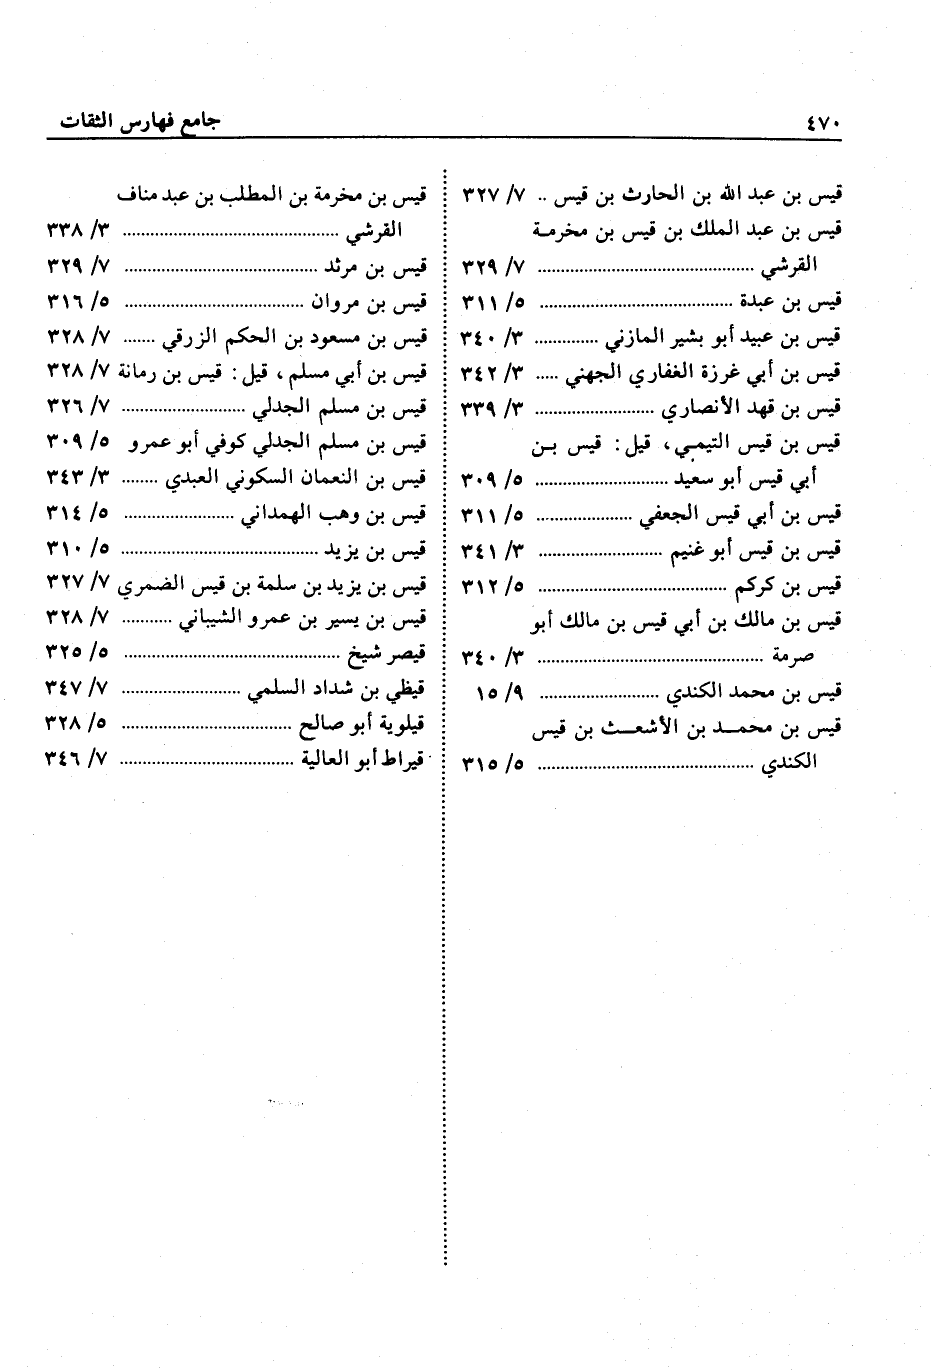 ٤٧٠
جامع فهارس الثقات
قيس بن عبد الله بن الحارث بن قيس .. ٧/ ٣٢٧
قيس بن عبد الملك بن قيس بن مخرمة
القرشي .............................................. ٧/ ٣٢٩
قيس بن عبدة ......................................... ٥/ ٣١١
قيس بن عبيد أبو بشير المازني .............. ٣/ ٣٤٠
قيس بن أبي غرزة الغفاري الجهني ..... ٣/ ٣٤٢
قيس بن قهد الأنصاري .......................... ٣/ ٣٣٩
قيس بن قيس التيمي، قيل: قيس بن
أبي قيس أبو سعيد ............................. ٥/ ٣٠٩
قيس بن أبي قيس الجعفي ..................... ٥/ ٣١١
قيس بن قيس أبو غنيم ........................... ٣/ ٣٤١
قيس بن كركم ........................................ ٥/ ٣١٢
قيس بن مالك بن أبي قيس بن مالك أبو
صرمة ................................................ ٣/ ٣٤٠
قيس بن محمد الكندي .......................... ٩/ ١٥
قيس بن محمد بن الأشعث بن قيس
الكندي .............................................. ٥/ ٣١٥
قيس بن مخرمة بن المطلب بن عبد مناف
القرشي .............................................. ٣/ ٣٣٨
قيس بن مرثد ......................................... ٧/ ٣٢٩
قيس بن مروان ...................................... ٥/ ٣١٦
قيس بن مسعود بن الحكم الزرقي ....... ٧/ ٣٢٨
قيس بن أبي مسلم، قيل: قيس بن رمانة ٧/ ٣٢٨
قيس بن مسلم الجدلي ........................... ٧/ ٣٢٦
قيس بن مسلم الجدلي كوفي أبو عمرو ٥/ ٣٠٩
قيس بن النعمان السكوني العبدي ........ ٣/ ٣٤٣
قيس بن وهب الهمداني ........................ ٥/ ٣١٤
قيس بن يزيد .......................................... ٥/ ٣١٠
قيس بن يزيد بن سلمة بن قيس الضمري ٧/ ٣٢٧
قيس بن يسير بن عمرو الشيباني ........... ٧/ ٣٢٨
قيصر شيخ .............................................. ٥/ ٣٢٥
قيظي بن شداد السلمي .......................... ٧/ ٣٤٧
قيلوية أبو صالح ..................................... ٥/ ٣٢٨
قيراط أبو العالية ..................................... ٧/ ٣٤٦